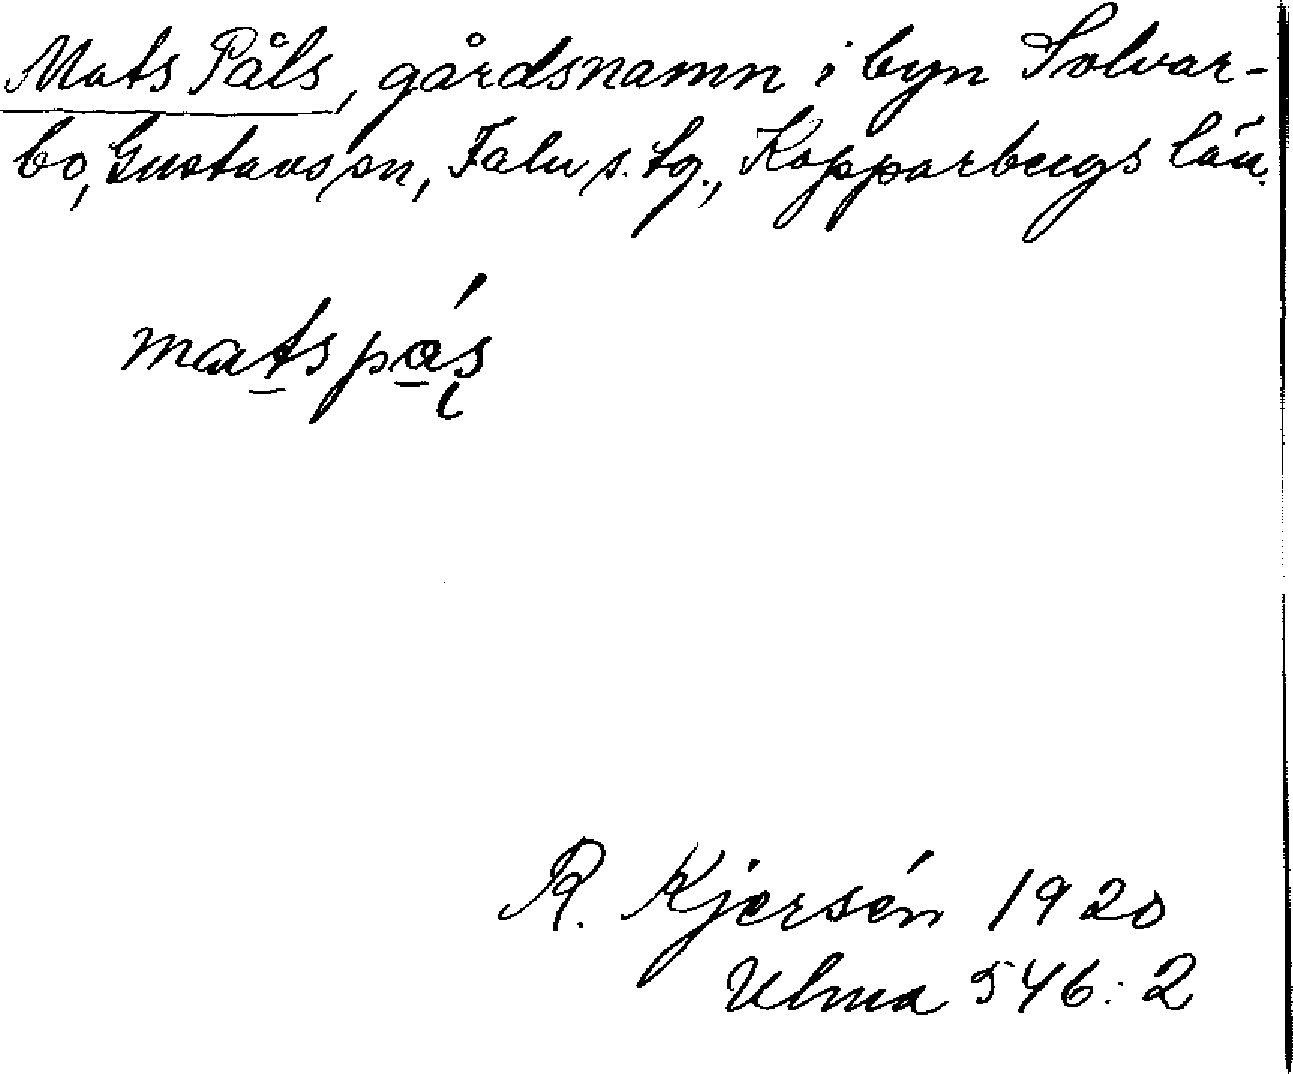 Mats Påls, gårdsnamn i byn Solvar-
bo, Gustavs sn, Falu s. tg., Kopparbergs län.
matspås
R. Kjersén 1920
Ulma 546:2